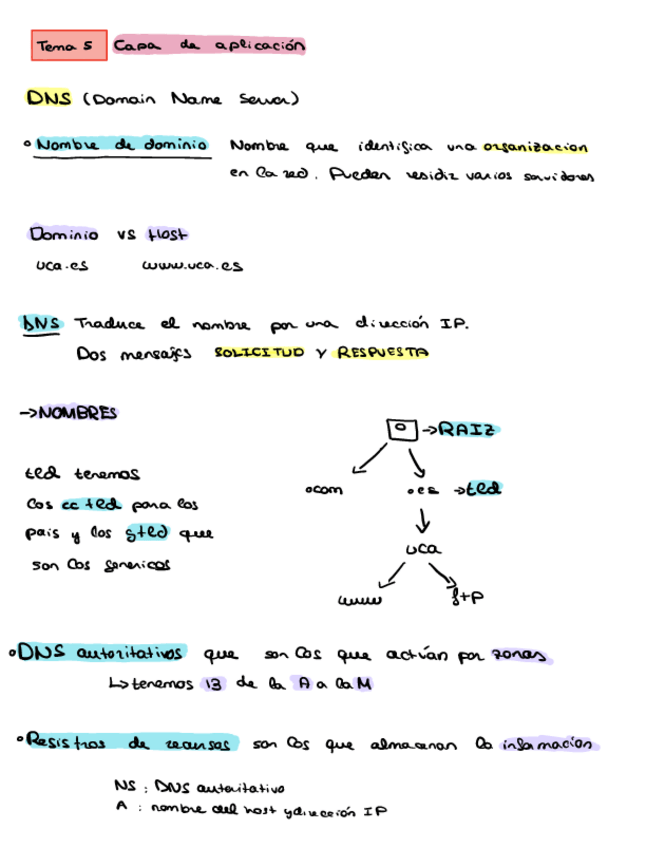 Tema 5 Capa de aplicación
DNS (Domain Name Server)
Nombre de dominio Nombre que identifica una organizacion
en la red. Pueden residir varios servidores
Dominio vs Host
uca.es www.uca.es
DNS Traduce el nombre por una dirección IP.
Dos mensajes SOLICITUD y RESPUESTA
→NOMBRES
→RAIZ
tld tenemos
.com .es →tld
los cc tld para los
pais y los gtld que
uca
son los genericos
www ftp
DNS autoritativos que son los que actúan por zonas
↳ tenemos 13 de la A a la M
Registros de recursos son los que almacenan la informacion
NS : DNS autoritativo
A : nombre del host y dirección IP